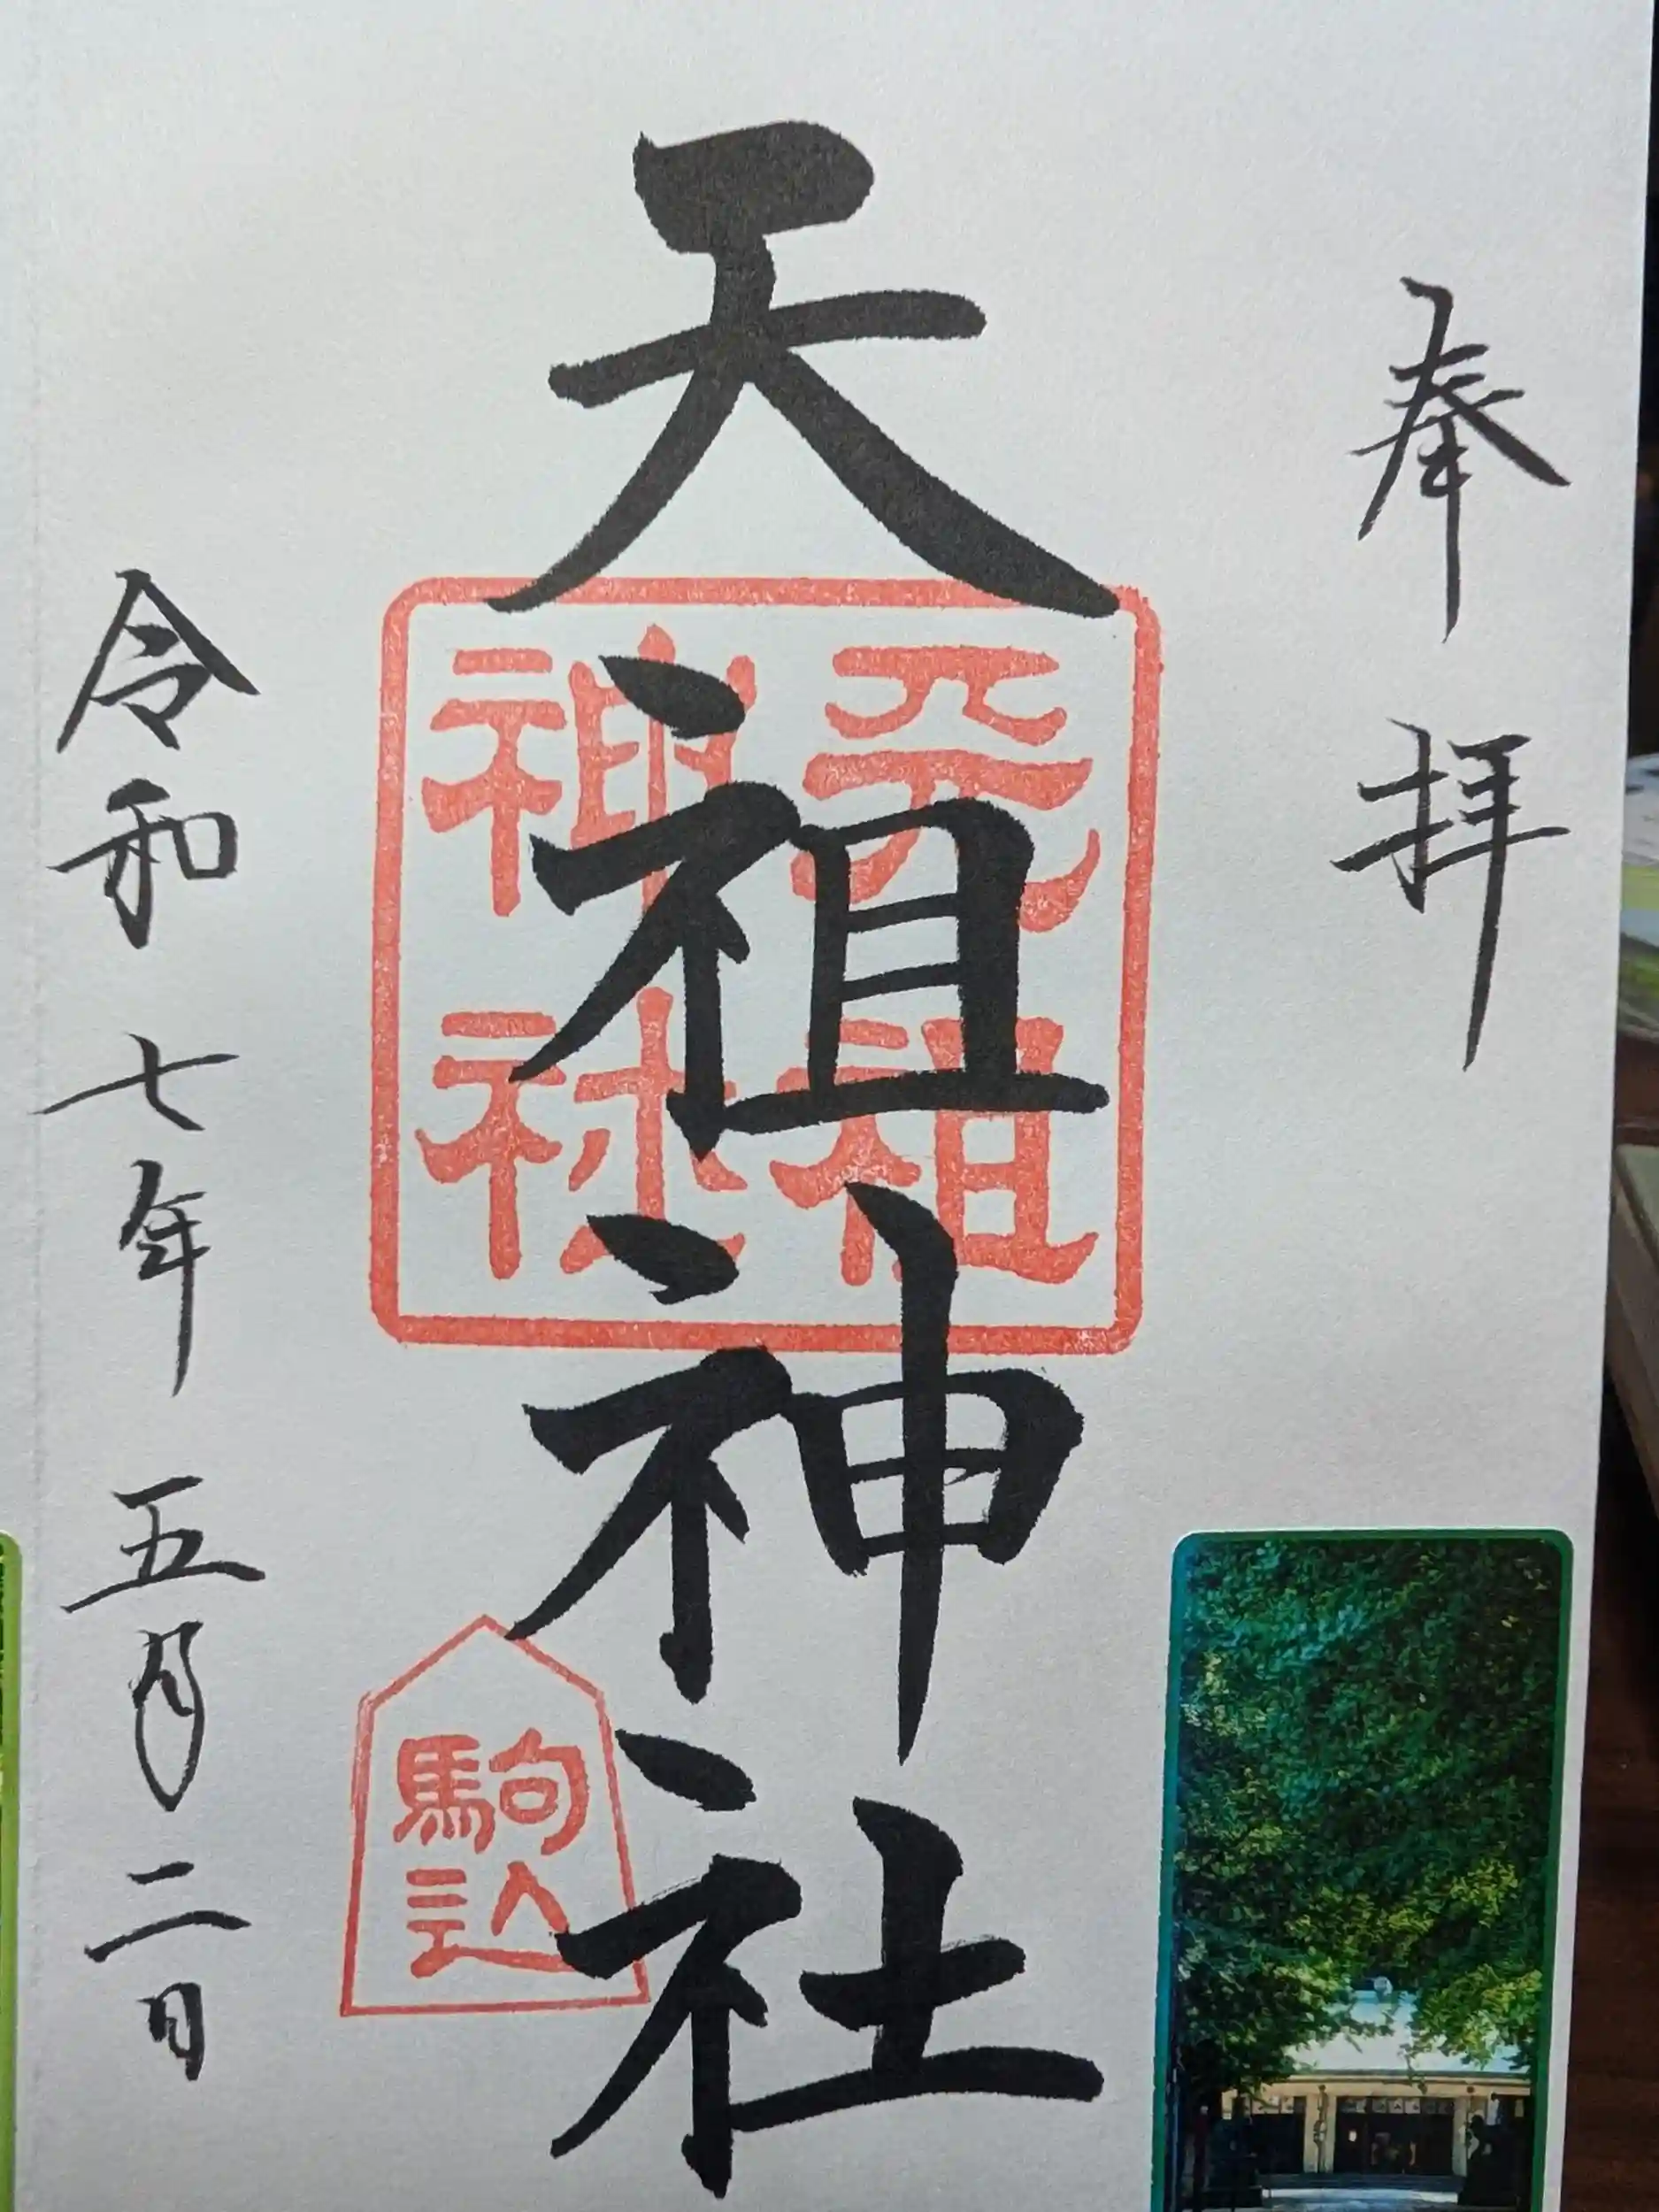 奉拝
天祖神社
天祖
神社
駒込
令和七年五月二日